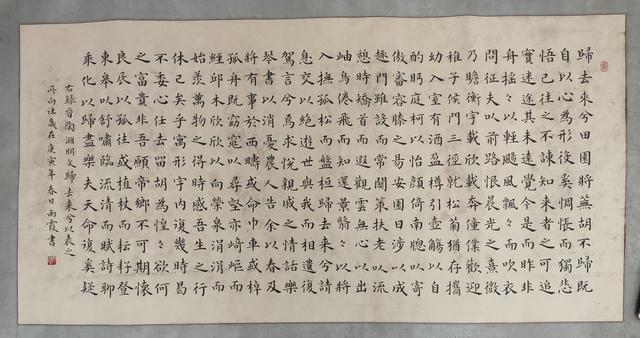 歸去來兮田園將蕪胡不歸既
自以心為形役奚惆悵而獨悲
悟已往之不諫知來者之可追
實迷途其未遠覺今是而昨非
舟搖々以輕颺風飄々而吹衣
問征夫以前路恨晨光之熹微
乃瞻衡宇載欣載奔僮僕歡迎
稚子候門三徑就松菊猶存攜
幼入室有酒盈樽引壺觴以自
酌眄庭柯以怡顏倚南窓以寄
傲審容膝之易安園日涉以成
趣門雖設而常關策扶老以流
憩時矯首而遐觀雲無心以出
岫鳥倦飛而知還景翳々以將
入撫孤松而盤桓歸去來兮請
息交以絕遊世與我而相遺復
駕言兮焉求悅親戚之情話樂
琴書以消憂農人告余以春及
將有事於西疇或命巾車或棹
孤舟既窈窕以尋壑亦崎嶇而
經邱木欣欣以向榮泉涓涓而
始羨萬物之得時感吾生之行
休已矣乎寓形宇內復幾時曷
不委心任去留胡為惶々欲何
之富貴非吾願帝鄉不可期懷
良辰以孤往或植杖而耘耔登
東皋以舒嘯臨清流而賦詩聊
乘化以歸盡樂夫天命復奚疑
右錄晉陶淵明文歸去來兮以表之
所向往歲在庚寅年春日雨霞書